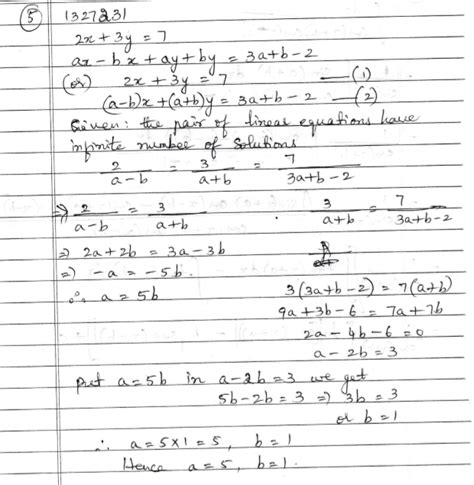 5 1327231
2x + 3y = 7
ax - bx + ay + by = 3a+b-2
(or) 2x + 3y = 7 —(1)
(a-b)x + (a+b)y = 3a+b-2 —(2)
Given: the pair of linear equations have
infinite number of solutions
2/(a-b) = 3/(a+b) = 7/(3a+b-2)
⇒ 2/(a-b) = 3/(a+b)
⇒ 2a+2b = 3a-3b
⇒ -a = -5b.
∴ a = 5b
3/(a+b) = 7/(3a+b-2)
3(3a+b-2) = 7(a+b)
9a+3b-6 = 7a+7b
2a-4b-6=0
a-2b=3
put a=5b in a-2b=3 we get
5b-2b=3 ⇒ 3b=3
or b=1
∴ a=5×1=5, b=1
Hence a=5, b=1.